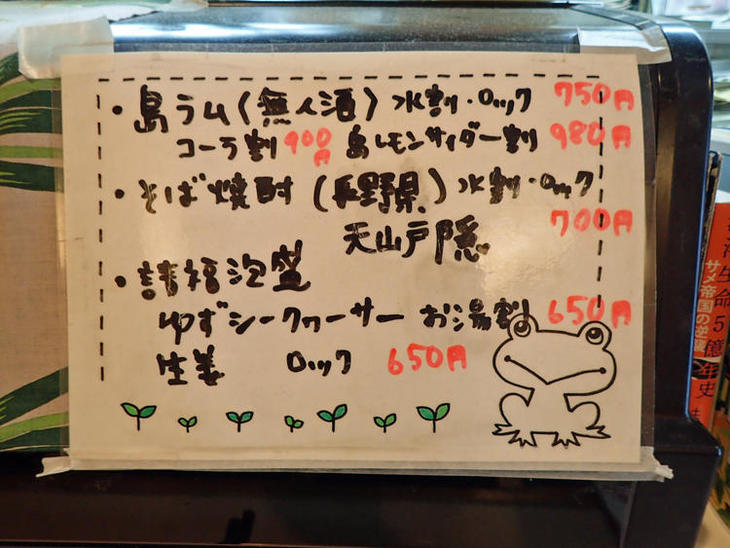 ・島ラム(無人酒)水割・ロック 750円
コーラ割 900円 島レモンサイダー割 980円
・そば焼酎(長野県)水割・ロック
700円
天山戸隠
・請福泡盛
ゆずシークヮーサー お湯割 650円
生姜 ロック 650円
生命5億年史
サメ帝国の逆襲